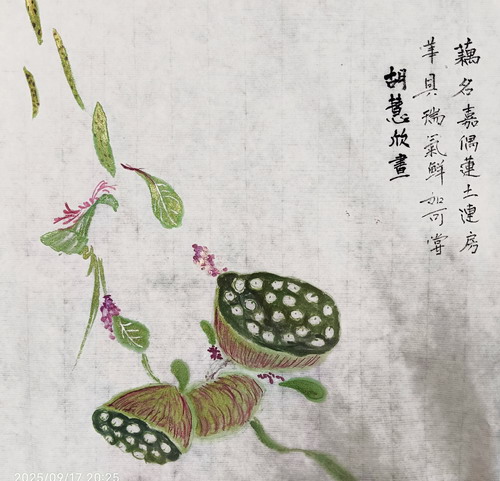 藕名嘉偶蓮土連房
華具瑞氣鮮如可嘗
胡慧欣畫
2025/09/17 20:25